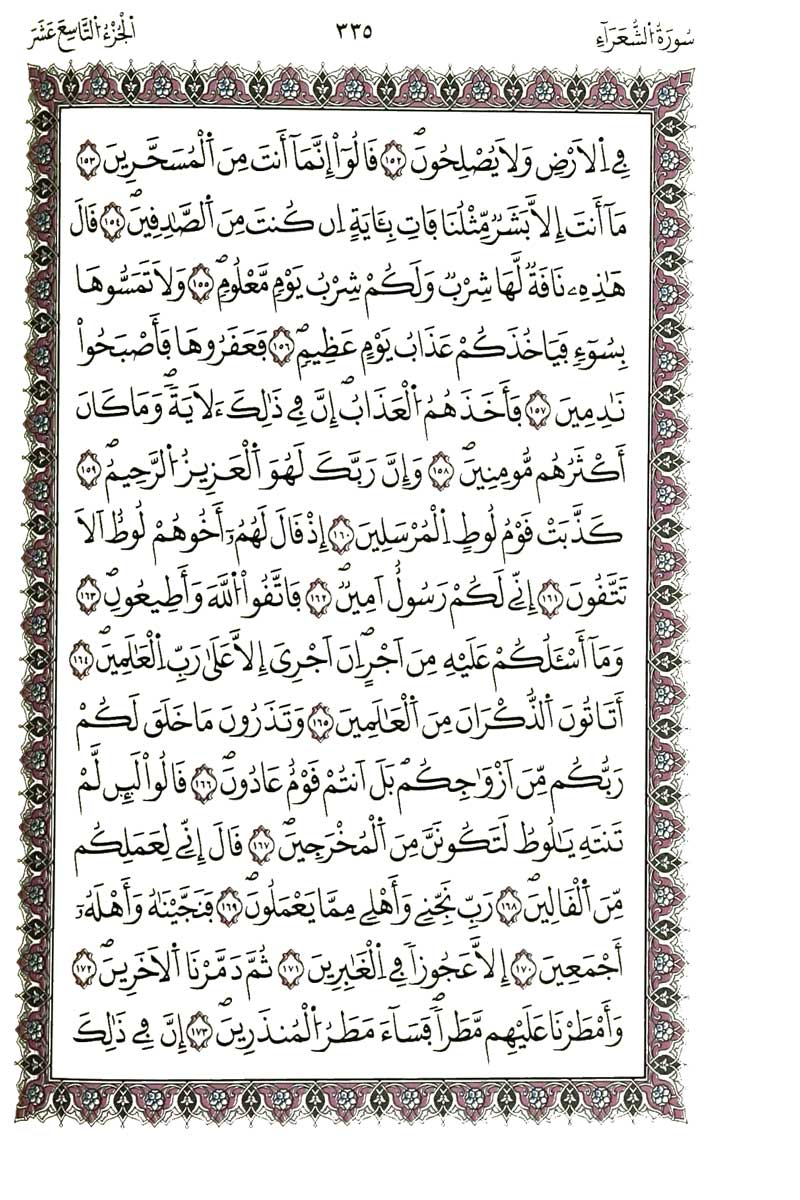 سُورَةُ الشُّعَرَآءِ ٣٣٥ الْجُزْءُ التَّاسِعَ عَشَرَ
فِے اِلَارْضِ وَلَا يُصْلِحُونَۖ ١٥٢ قَالُوٓاْ إِنَّمَآ أَنتَ مِنَ اَلْمُسَحَّرِينَ ١٥٣
مَآ أَنتَ إِلَّا بَشَرٞ مِّثْلُنَا فَاتِ بِـَٔايَةٍ اِن كُنتَ مِنَ اَلصَّٰدِقِينَۖ ١٥٤ قَالَ
هَٰذِهِۦ نَاقَةٞ لَّهَا شِرْبٞ وَلَكُمْ شِرْبُ يَوْمٖ مَّعْلُومٖۖ ١٥٥ وَلَا تَمَسُّوهَا
بِسُوٓءٖ فَيَاخُذَكُمْ عَذَابُ يَوْمٍ عَظِيمٖۖ ١٥٦ فَعَقَرُوهَا فَأَصْبَحُواْ
نَٰدِمِينَ ١٥٧ فَأَخَذَهُمُ اُلْعَذَابُۖ إِنَّ فِے ذَٰلِكَ ءَلَايَةٗۖ وَمَا كَانَ
أَكْثَرُهُم مُّومِنِينَۖ ١٥٨ وَإِنَّ رَبَّكَ لَهُوَ اَلْعَزِيزُ اُلرَّحِيمُۖ ١٥٩
كَذَّبَتْ قَوْمُ لُوطٍ اِلْمُرْسَلِينَ ١٦٠ إِذْ قَالَ لَهُمُۥٓ أَخُوهُمْ لُوطٌ اَلَا
تَتَّقُونَ ١٦١ إِنِّے لَكُمْ رَسُولٌ اَمِينٞۖ ١٦٢ فَاتَّقُواْ اُللَّهَ وَأَطِيعُونِۖ ١٦٣
وَمَآ أَسْـَٔلُكُمْ عَلَيْهِ مِنَ اَجْرٍۖ اِنَ اَجْرِيَ إِلَّا عَلَىٰ رَبِّ اِلْعَٰلَمِينَۖ ١٦٤
أَتَاتُونَ اَلذُّكْرَانَ مِنَ اَلْعَٰلَمِينَ ١٦٥ وَتَذَرُونَ مَا خَلَقَ لَكُمْ
رَبُّكُم مِّنَ اَزْوَٰجِكُمۖ بَلَ اَنتُمْ قَوْمٌ عَادُونَۖ ١٦٦ قَالُواْ لَئِن لَّمْ
تَنتَهِ يَٰلُوطُ لَتَكُونَنَّ مِنَ اَلْمُخْرَجِينَۖ ١٦٧ قَالَ إِنِّے لِعَمَلِكُم
مِّنَ اَلْقَالِينَۖ ١٦٨ رَبِّ نَجِّنِے وَأَهْلِے مِمَّا يَعْمَلُونَۖ ١٦٩ فَنَجَّيْنَٰهُ وَأَهْلَهُۥٓ
أَجْمَعِينَ ١٧٠ إِلَّا عَجُوزاٗ فِے اِلْغَٰبِرِينَ ١٧١ ثُمَّ دَمَّرْنَا اَلَاخَرِينَۖ ١٧٢
وَأَمْطَرْنَا عَلَيْهِم مَّطَراٗۖ فَسَآءَ مَطَرُ اُلْمُنذَرِينَۖ ١٧٣ إِنَّ فِے ذَٰلِكَ